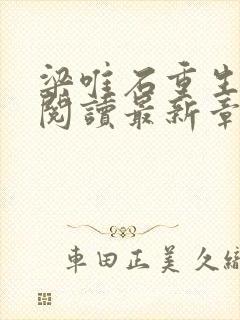 梁唯石重生
閱讀最新章
車田正美 久織